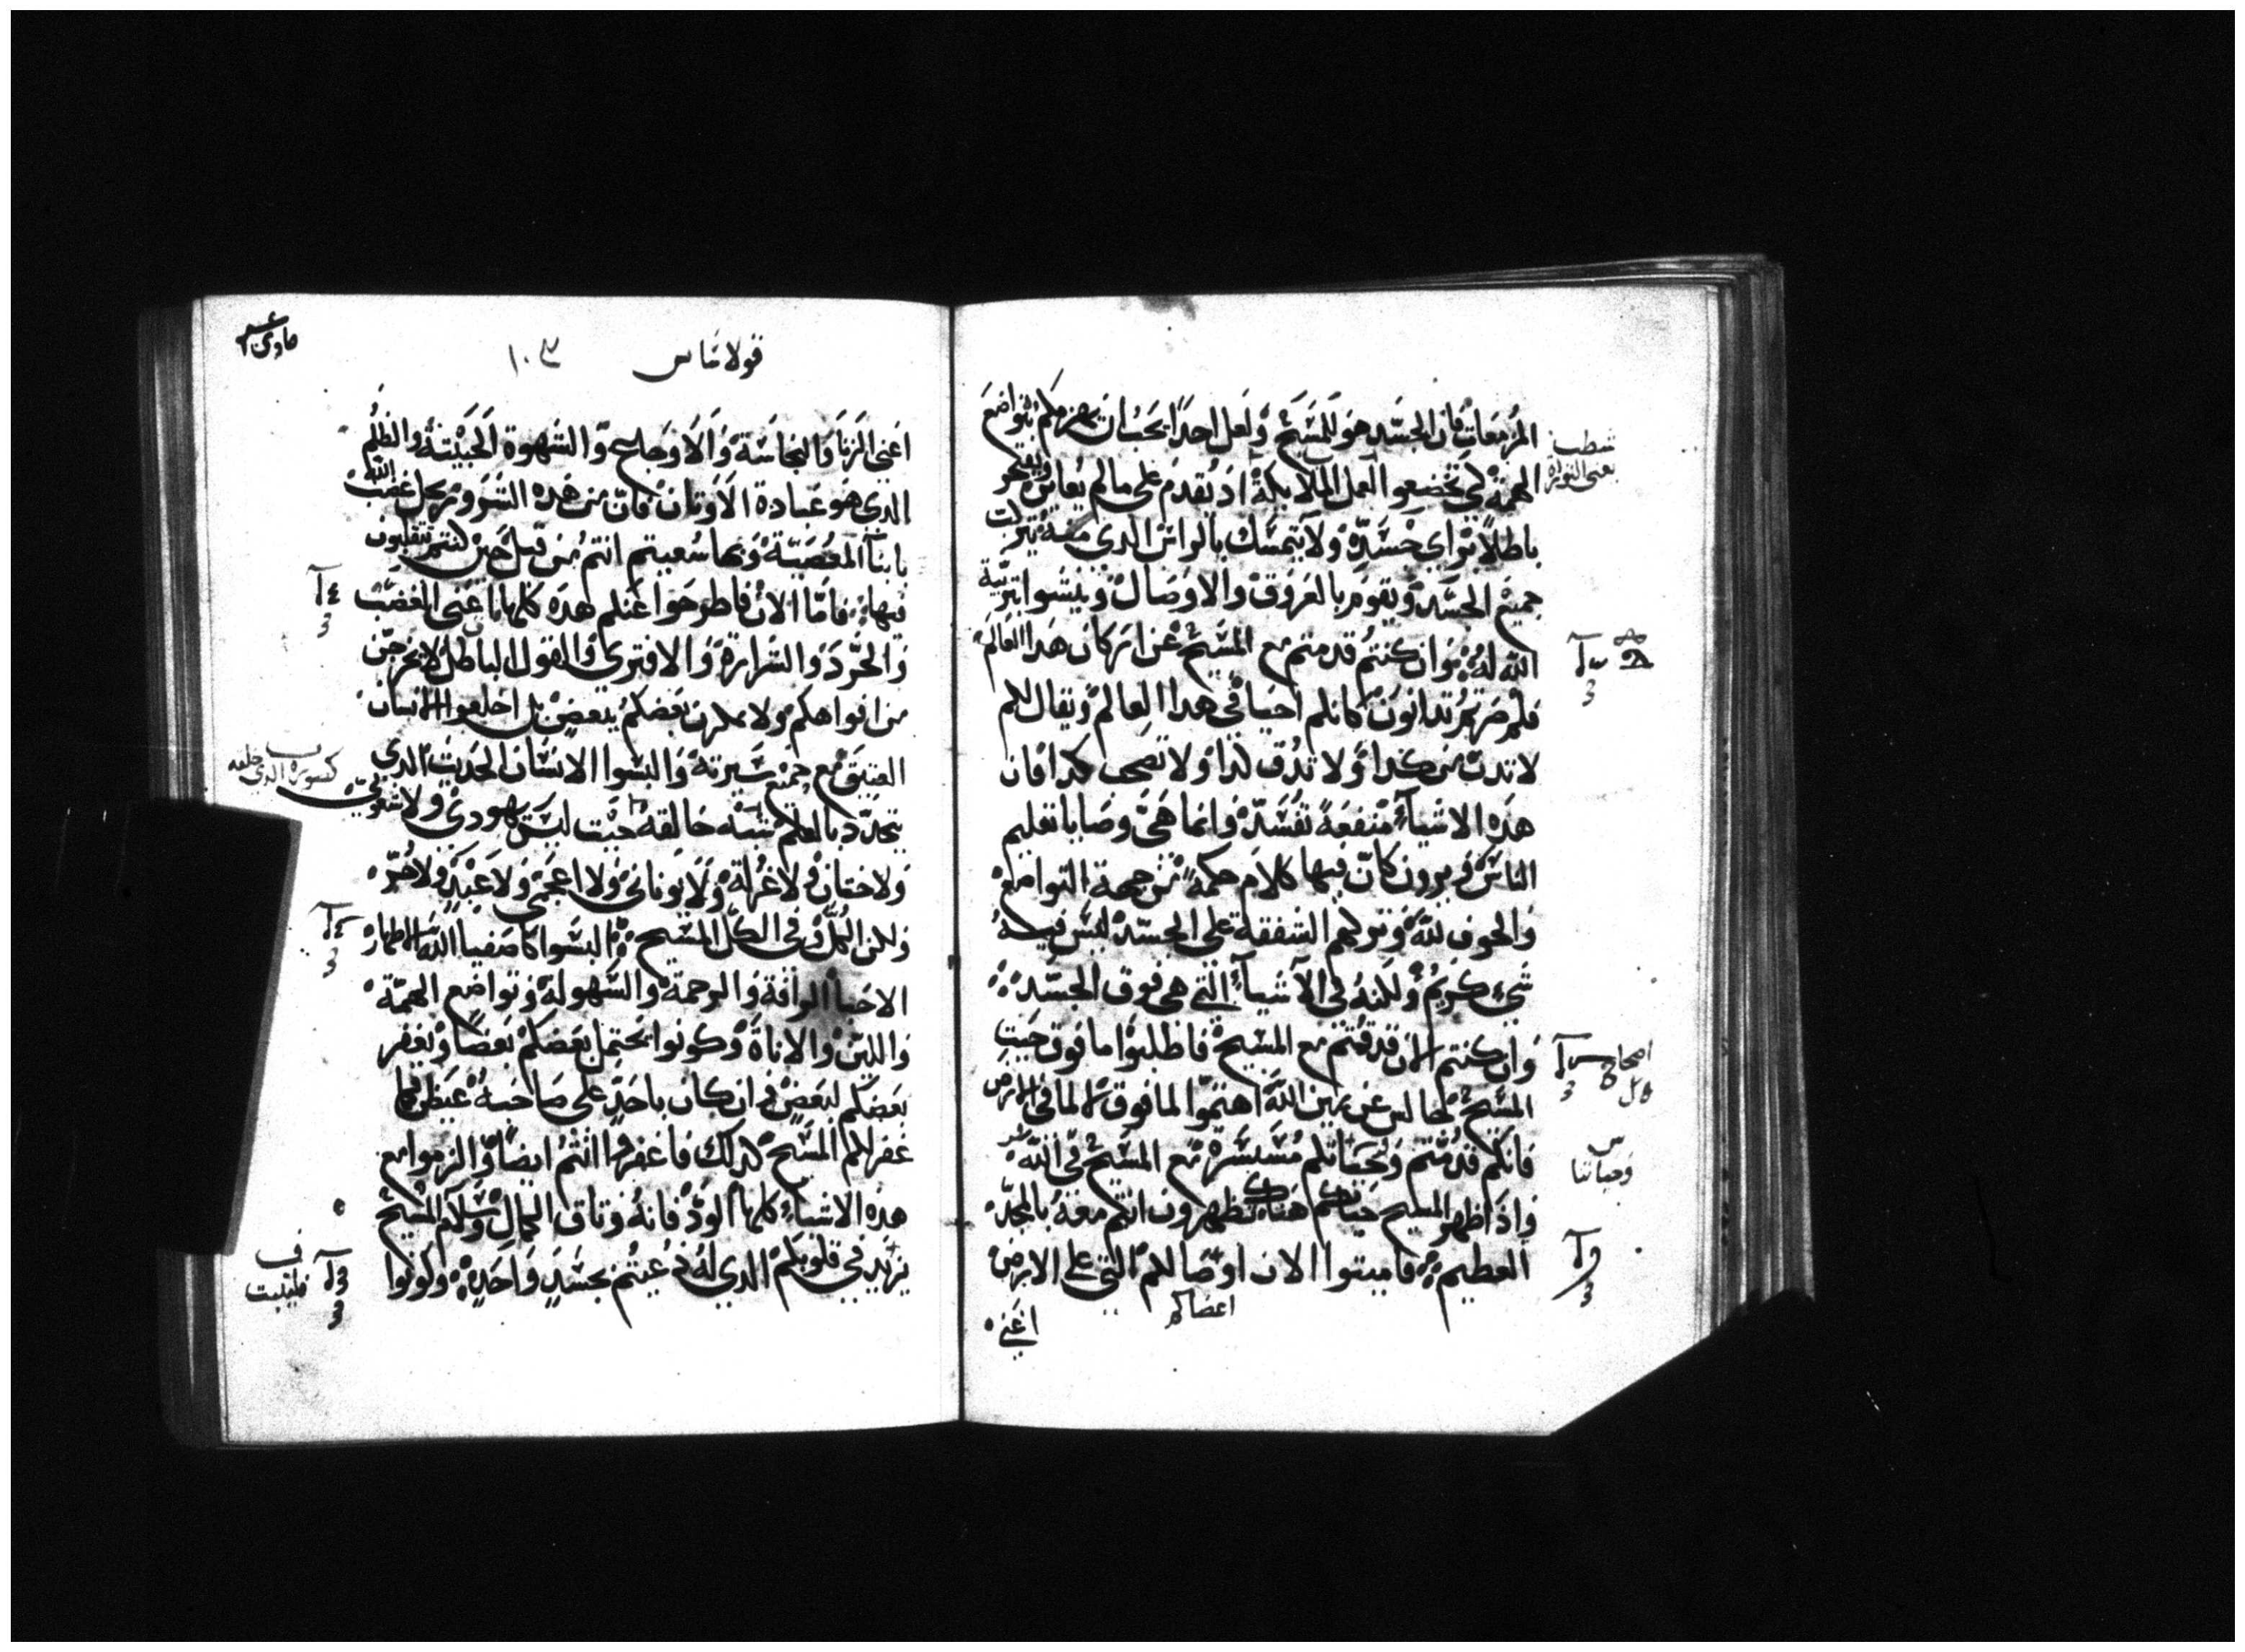 المزمعات فان الجسد هو المسيح ولعل احدًا يحب ان يهزمكم بتواضع
الهمة لكي تخضعوا لعمل الملايكة اذ يقدم على ما لم يعاين ويفتخر
باطلًا براي جسده ولا يتمسك بالراس الدي منه يتركب
جميع الجسد ويقوم بالعروق والاوصال وينشوا بتربية
الله له وان كنتم قد متم مع المسيح عن اركان هدا العالم
فلم صرتم تدانون كانكم احيا في هدا العالم ويقال لكم
لا تدن من كدا ولا تدق كدا ولا تصحب كدا فان
هده الاشياء منفعة تفسد وانما هي وصايا تعليم
الناس ويرون كان فيها كلام حكمة من جهة التواضع
والخوف لله وتركهم الشفقة على الجسد ليس فيه
شيء كريم ولكنه في الاشياء التي هي فوق الجسد
وان كنتم الان قد قمتم مع المسيح فاطلبوا ما فوق حيث
المسيح جالس عن يمين الله اهتموا لما فوق لا لما في الارض
فانكم قد متم وحياتكم مستترة مع المسيح في الله
واذا ظهر المسيح حياتكم هناك تظهرون انتم معه بالمجد
العظيم فاميتوا الان اوصالكم التي على الارض
اعضاكم
اعني
شطب
يعني التوراة
اصحاح
وحياتنا
قولاساس ١٠٣
اعني الزنا والنجاسة والاوجاع والشهوة الخبيثة والظلم
الدي هو عبادة الاوتان فان من هده الشرور يحل غضب الله
بابنا المعصية وبها سعيتم انتم من قبل حين كنتم تتقلبون
فيها فاما الان فاطرحوا عنكم هده كلها اعني الغضب
والحرد والشرارة والافترى والقول الباطل لا يخرجن
من افواهكم ولا بعضكم ببعض بل اخلعوا الانسان
العتيق مع جميع سيرته والبسوا الانسان الحديث الدي
يتجدد بالعلم شبه خالقه حيث ليس يهودي ولا شعوبي
ولا ختان ولا غرلة ولا يوناني ولا اعجمي ولا عبد ولا حر
ولكن الكل وفي الكل المسيح البسوا كاصفيا الله الاطهار
الاحبا الرافة والرحمة والسهولة وتواضع الهمة
واللين والاناة وكونوا يحتمل بعضكم بعضًا ويغفر
بعضكم لبعض وان كان باحد على صاحبه غيظ كما
غفر لكم المسيح كدلك فاغفروا انتم ايضًا والزموا مع
هده الاشياء كلها الود فانه وتاق الكمال وسلام المسيح
يزيد في قلوبكم الدي له دعيتم بجسد واحد وكونوا
كصورة الدي خلقه
فليثبت